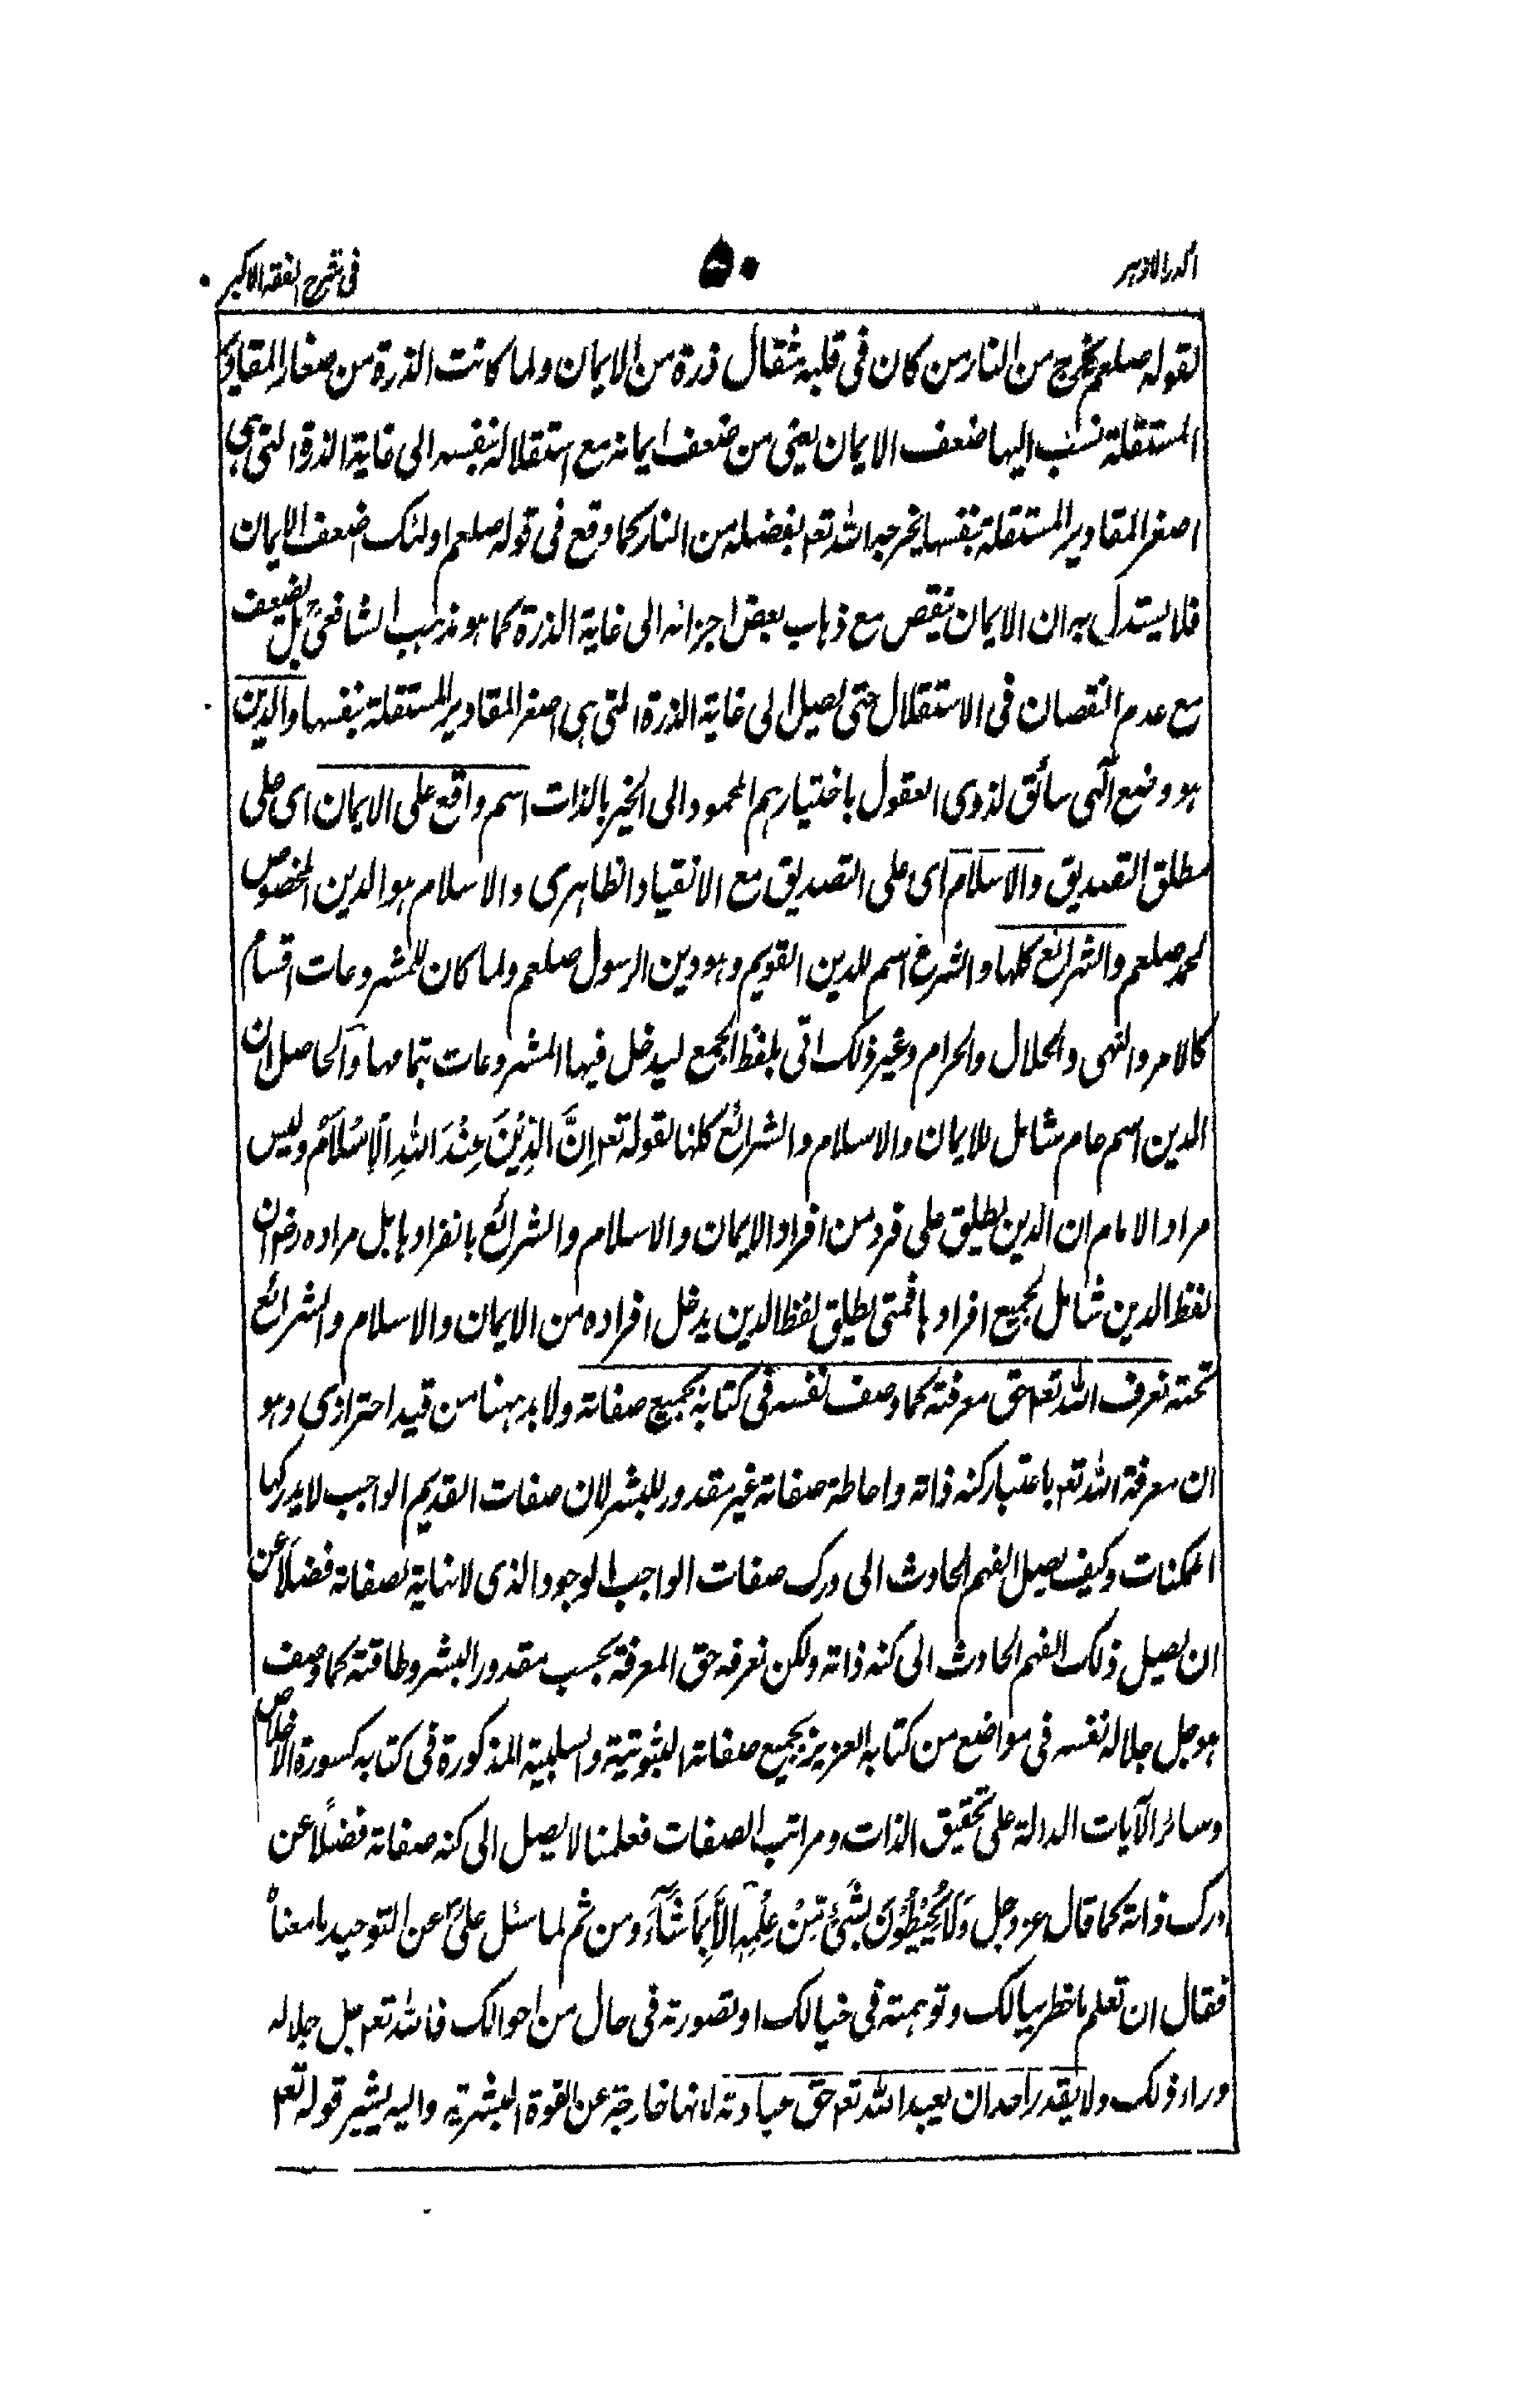 الدر الازهر ٥٠ فى شرح الفقه الاكبر
لقوله صلعم يخرج من النار من كان فى قلبه مثقال ذرة من الايمان ولما كانت الذرة من صغار المقادير
المستقلة نسب اليها ضعف الايمان يعنى من ضعف ايمانه مع استقلاله بنفسه الى غاية الذرة التى هى
اصغر المقادير المستقلة بنفسها يخرجه الله تعم بفضله من النار كما وقع فى قوله صلعم اولئك اضعف الايمان
فلا يستدل به ان الايمان ينقص مع ذهاب بعض اجزائه الى غاية الذرة كما هو مذهب الشافعى بل يضعف
مع عدم النقصان فى الاستقلال حتى يصل الى غاية الذرة التى هى اصغر المقادير المستقلة بنفسها والدين
هو وضع آلهى سائق لذوى العقول باختيارهم المحمود الى الخير بالذات اسم واقع على الايمان اى على
مطلق التصديق والاسلام اى على التصديق مع الانقياد الظاهرى والاسلام هو الدين المخصوص
لمحمد صلعم والشرائع كلها والشرع اسم للدين القويم وهو دين الرسول صلعم ولما كان للمشروعات اقسام
كالامر والنهى والحلال والحرام وغير ذلك اتى بلفظ الجمع ليدخل فيها المشروعات بتمامها والحاصل ان
الدين اسم عام شامل للايمان والاسلام والشرائع كلها لقوله تعم اِنَّ الدِّيْنَ عِنْدَ اللهِ الْاِسْلَامُ وليس
مراد الامام ان الدين يطلق على فرد من افراد الايمان والاسلام والشرائع بانفرادها بل مراده رض ان
لفظ الدين شامل لجميع افرادها فمتى يطلق لفظ الدين يدخل افراده من الايمان والاسلام والشرائع
تحته نعرف الله تعم حق معرفته كما وصف نفسه فى كتابه بجميع صفاته ولا بد ههنا من قيد احترازى وهو
ان معرفة الله تعم باعتبار كنه ذاته واحاطة صفاته غير مقدور للبشر لان صفات القديم الواجب لا يدركها
الممكنات وكيف يصل الفهم الحادث الى درك صفات الواجب الوجود الذى لا نهاية لصفاته فضلًا عن
ان يصل ذلك الفهم الحادث الى كنه ذاته ولكن نعرفه حق المعرفة بحسب مقدور البشر وطاقته كما وصف
هو جل جلاله نفسه فى مواضع من كتابه العزيز بجميع صفاته الثبوتية والسلبية المذكورة فى كتابه كسورة الاخلاص
وسائر الآيات الدالة على تحقيق الذات ومراتب الصفات فعلمنا لا يصل الى كنه صفاته فضلًا عن
درك ذاته كما قال عز وجل وَلَا يُحِيْطُوْنَ بِشَىْءٍ مِّنْ عِلْمِهٖ اِلَّا بِمَا شَآءَ ومن ثم لما سئل على عن التوحيد ما معناه
فقال ان تعلم ما خطر ببالك وتوهمته فى خيالك او تصورته فى حال من احوالك فالله تعم جل جلاله
وراء ذلك ولا يقدر احد ان يعبد الله تعم حق عبادته لانها خارجة عن القوة البشرية واليه يشير قوله تعم